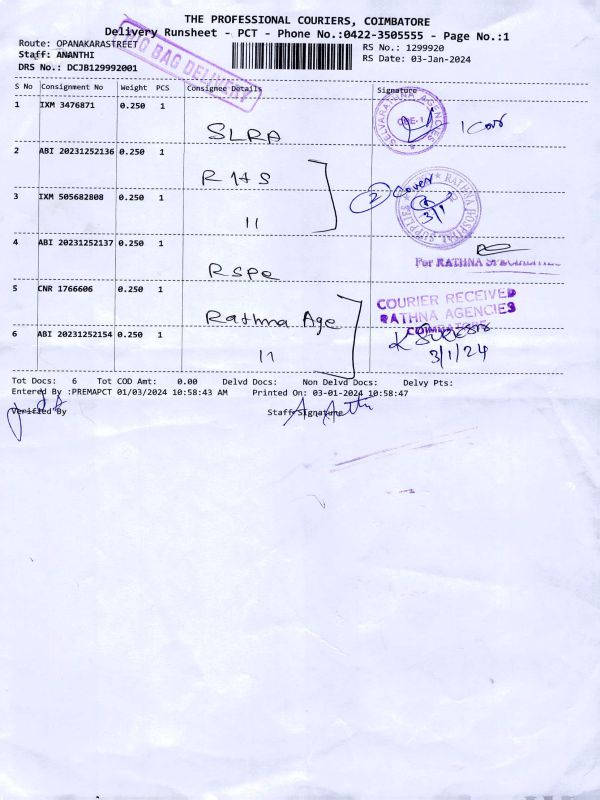 THE PROFESSIONAL COURIERS, COIMBATORE
Delivery Runsheet - PCT - Phone No.:0422-3505555 - Page No.:1
Route: OPANAKARASTREET
RS No.: 1299920
Staff: ANANTHI
RS Date: 03-Jan-2024
DRS No.: DCJB129992001
BAG DELIVERY
S No Consignment No Weight PCS Consignee Details Signature
1 IXM 3476871 0.250 1
SLRA
SELVARATHNA AGENCIES
CBE-1
1 Cover
2 ABI 20231252136 0.250 1
R H S
3 IXM 505682808 0.250 1
11
2 Cover
3/1
RATHNA HOSPITAL SUPPLIES
4 ABI 20231252137 0.250 1
RSPe
For RATHNA SPECIALITIES
5 CNR 1766606 0.250 1
Rathna Age
COURIER RECEIVED
RATHNA AGENCIES
6 ABI 20231252154 0.250 1
11
3/1/24
Tot Docs: 6 Tot COD Amt: 0.00 Delvd Docs: Non Delvd Docs: Delvy Pts:
Entered By :PREMAPCT 01/03/2024 10:58:43 AM Printed On: 03-01-2024 10:58:47
Verified By Staff Signature